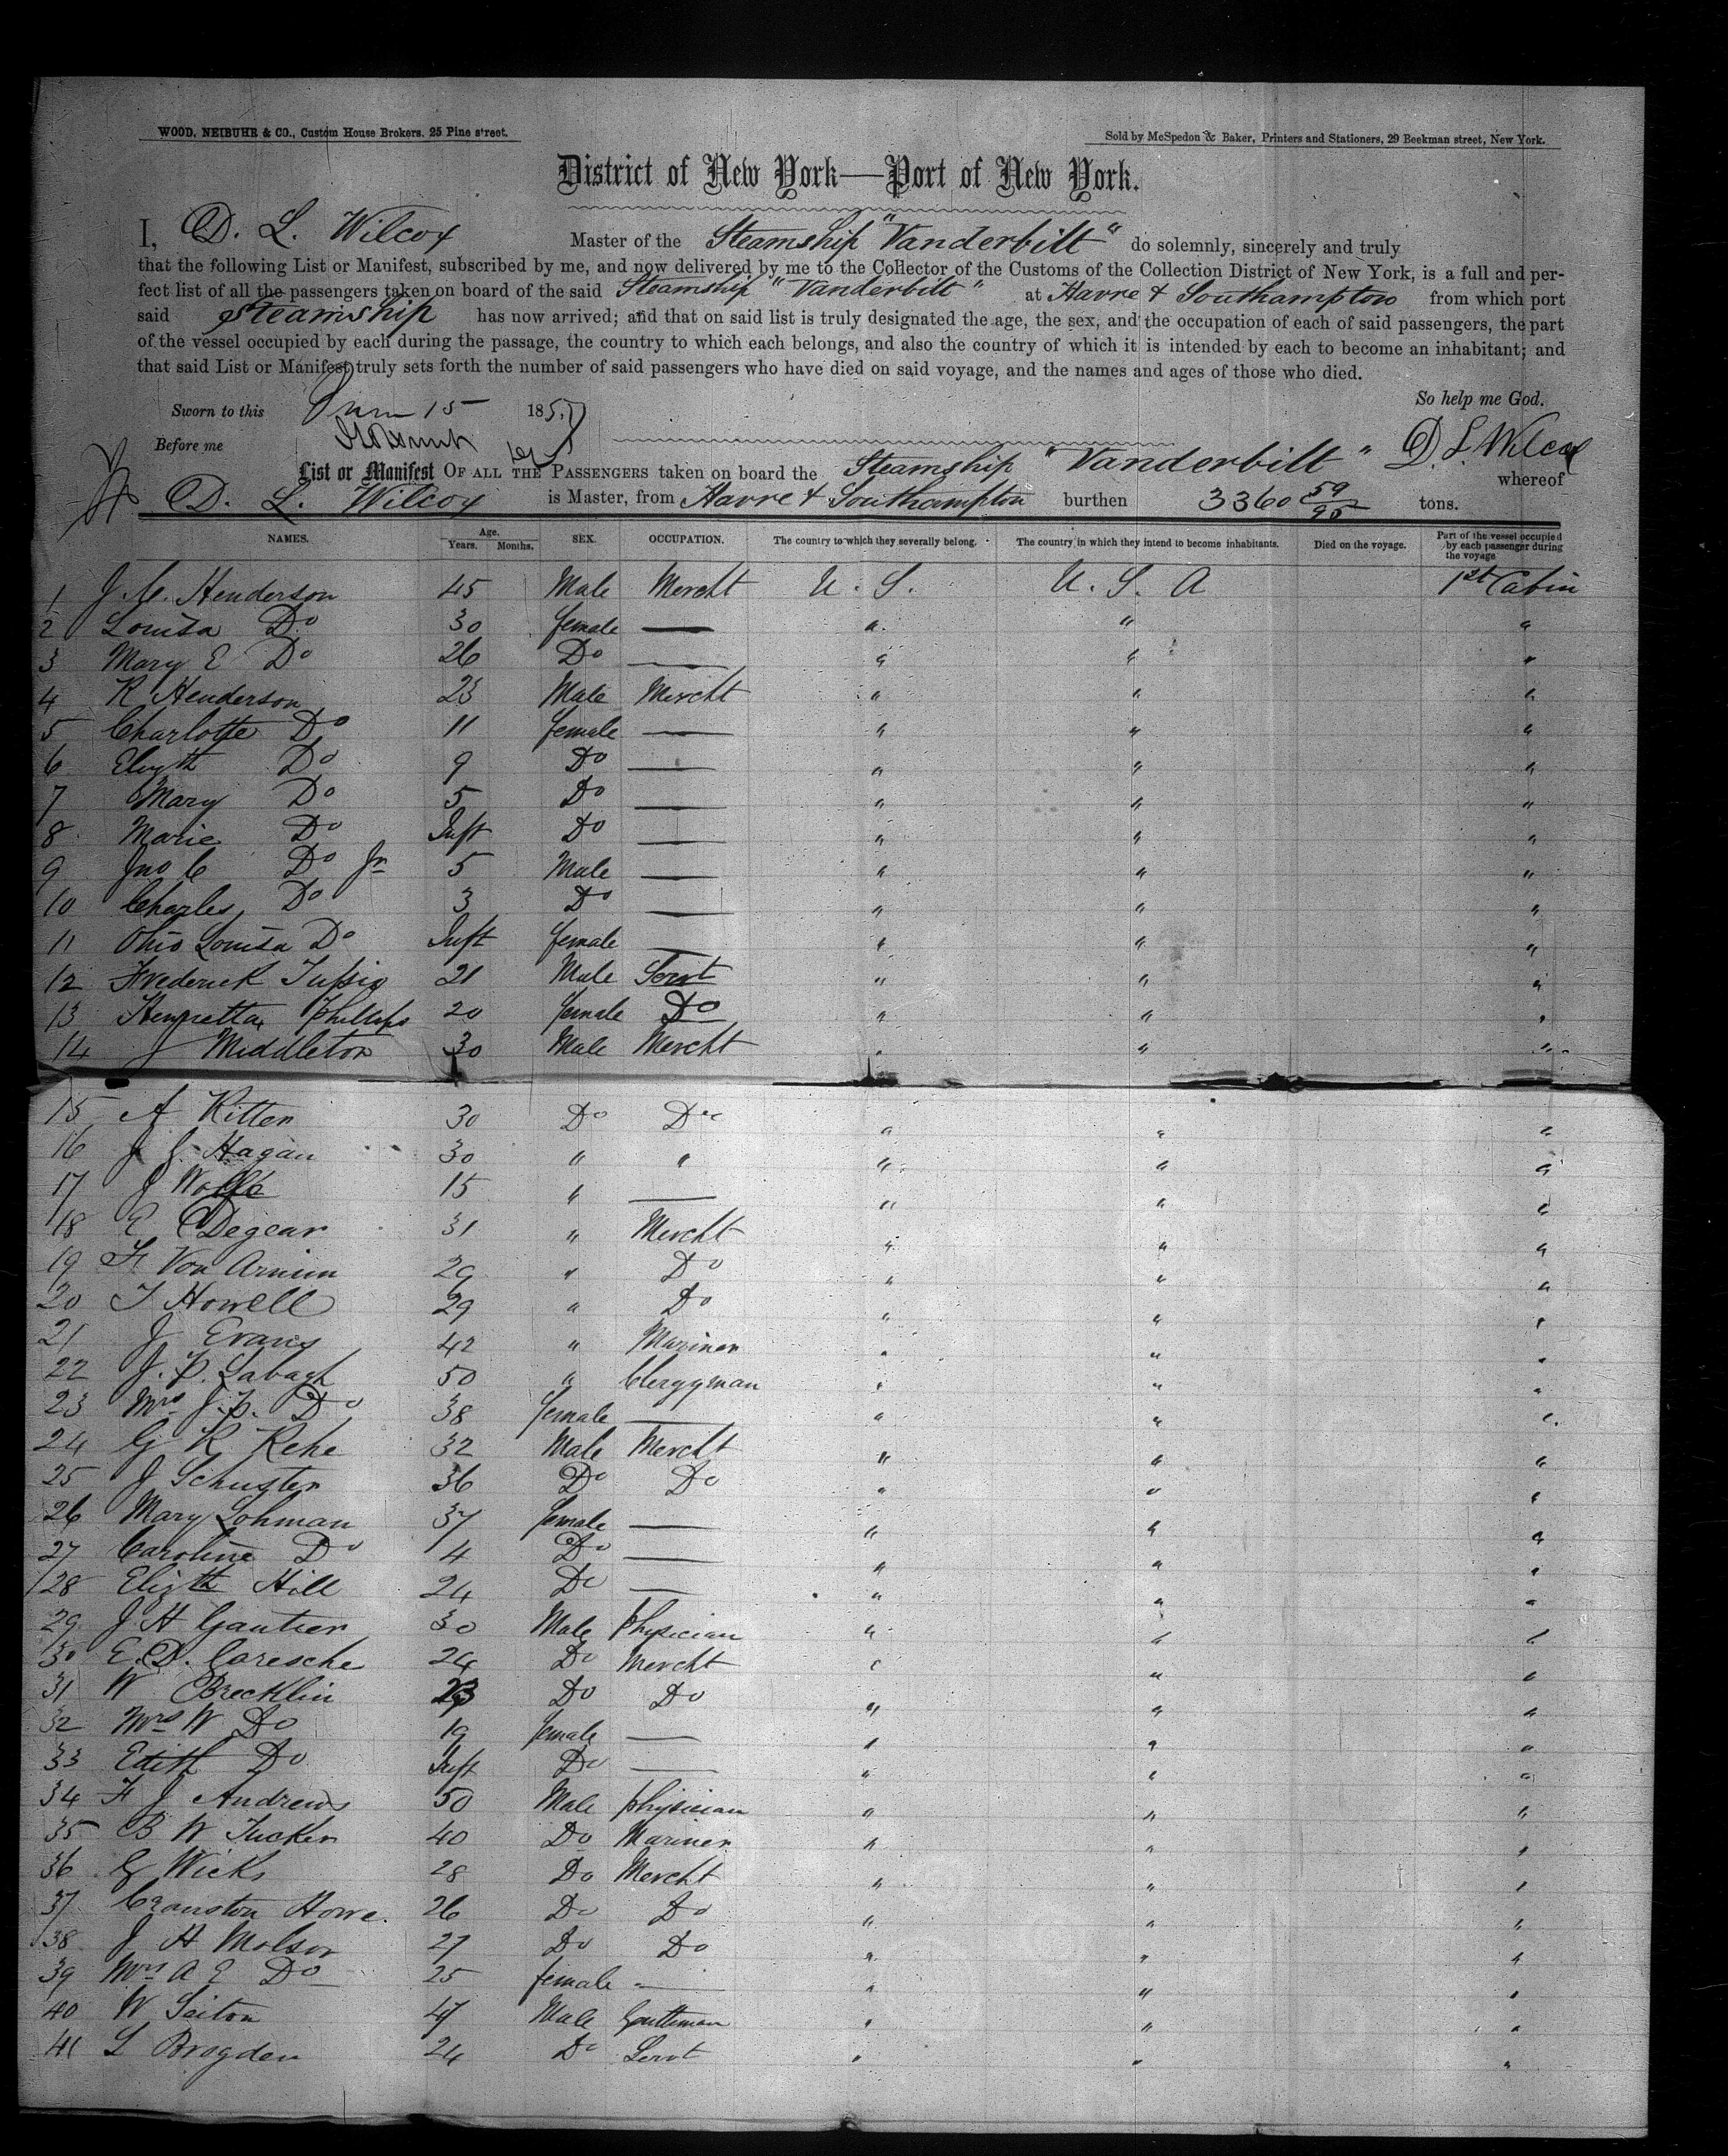 WOOD, NEIBUHR & CO., Custom House Brokers, 25 Pine street.
Sold by McSpedon & Baker, Printers and Stationers, 29 Beekman street, New York.
District of New York—Port of New York.
I, D. L. Wilcox Master of the Steamship "Vanderbilt" do solemnly, sincerely and truly
that the following List or Manifest, subscribed by me, and now delivered by me to the Collector of the Customs of the Collection District of New York, is a full and per-
fect list of all the passengers taken on board of the said Steamship "Vanderbilt" at Havre & Southampton from which port
said Steamship has now arrived; and that on said list is truly designated the age, the sex, and the occupation of each of said passengers, the part
of the vessel occupied by each during the passage, the country to which each belongs, and also the country of which it is intended by each to become an inhabitant; and
that said List or Manifest truly sets forth the number of said passengers who have died on said voyage, and the names and ages of those who died.
Sworn to this 15 185 So help me God.
Before me D. L. Wilcox
List or Manifest OF ALL THE PASSENGERS taken on board the Steamship "Vanderbilt" whereof
D. L. Wilcox is Master, from Havre & Southampton burthen 3360 59/95 tons.
NAMES. Age. Years. Months. SEX. OCCUPATION. The country to which they severally belong. The country in which they intend to become inhabitants. Died on the voyage. Part of the vessel occupied by each passenger during the voyage
1 J. C. Henderson 45 Male Mercht U. S. U. S. A 1st Cabin
2 Louisa Do 30 female — " " "
3 Mary E Do 26 Do — " " "
4 R Henderson 23 Male Mercht " " "
5 Charlotte Do 11 female — " " "
6 Elizth Do 9 Do — " " "
7 Mary Do 5 Do — " " "
8 Marie Do Inft Do — " " "
9 Jno C Do Jr 5 Male — " " "
10 Charles Do 3 Do — " " "
11 Ohio Louisa Do Inft female — " " "
12 Frederick 21 Male Servt " " "
13 Henrietta Phillips 20 female Do " " "
14 J Middleton 30 Male Mercht " " "
15 A Ritter 30 Do Do " " "
16 J J Hagan 30 " " " " "
17 J Wolfe 15 " — " " "
18 E Degear 31 " Mercht " " "
19 F Von Arnim 29 " Do " " "
20 T Howell 29 " Do " " "
21 J Evans 42 " Mariner " " "
22 J. P. Labagh 50 " Clergyman " " "
23 Mrs J. P. Do 38 female — " " "
24 G R Rehe 32 Male Mercht " " "
25 J Schuster 36 Do Do " " "
26 Mary Lohman 37 female — " " "
27 Caroline Do 4 Do — " " "
28 Elizth Hill 24 Do — " " "
29 J H Gautier 30 Male Physician " " "
30 E. D. Caresche 24 Do Mercht " " "
31 W Brecklin 23 Do Do " " "
32 Mrs W Do 19 female — " " "
33 Edith Do Inft Do — " " "
34 F J Andrews 50 Male physician " " "
35 B W Tucker 40 Do Mariner " " "
36 G Wicks 28 Do Mercht " " "
37 Cranston Howe. 26 Do Do " " "
38 J H Molson 27 Do Do " " "
39 Mrs A E Do 25 female — " " "
40 W Seiton 47 Male Gentleman " " "
41 L Brogden 24 Do Servt " " "